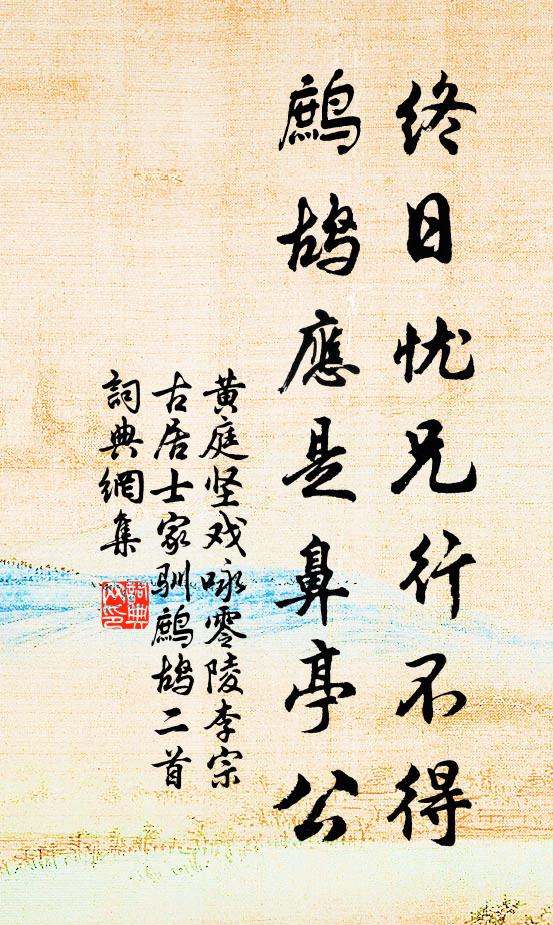 終日忧兄行不得
鷓鸪應是鼻亭公
黄庭坚戏咏零陵李宗
古居士家驯鷓鸪二首
詞典網集